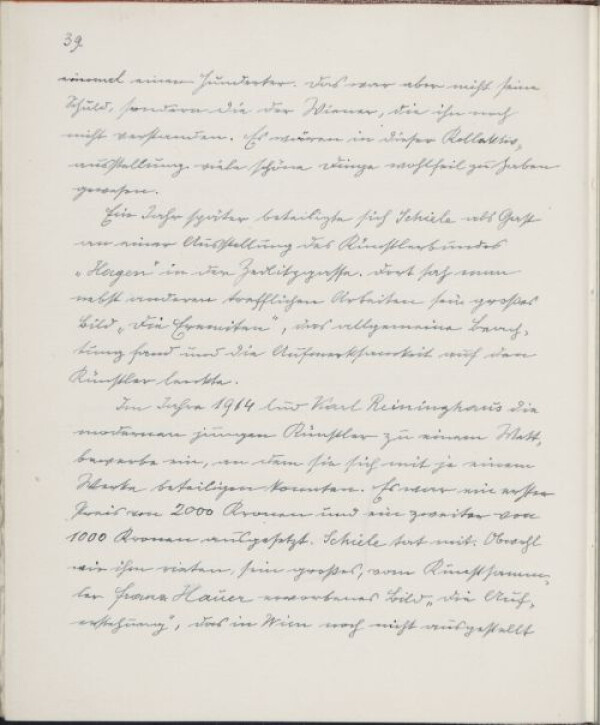 39
einmal einen Hunderter. Das war aber nicht seine
Schuld, sondern die der Wiener, die ihn noch
nicht verstanden. Es wären in dieser Kollektiv-
ausstellung viele schöne Dinge wohlfeil zu haben
gewesen.
Ein Jahr später beteiligte sich Schiele als Gast
an einer Ausstellung des Künstlerbundes
„Hagen" in der Zedlitzgasse. Dort sah man
nebst anderen trefflichen Arbeiten sein großes
Bild „Die Eremiten", das allgemeine Beach-
tung fand und die Aufmerksamkeit auf den
Künstler lenkte.
Im Jahre 1914 lud Karl Reininghaus die
modernen jungen Künstler zu einem Wett-
bewerbe ein, an dem sie sich mit je einem
Werke beteiligen konnten. Es war ein erster
Preis von 2000 Kronen und ein zweiter von
1000 Kronen ausgesetzt. Schiele tat mit. Obwohl
wir ihm rieten, sein großes, vom Kunstsamm-
ler Franz Hauer erworbenes Bild „Die Auf-
erstehung", das in Wien noch nicht ausgestellt